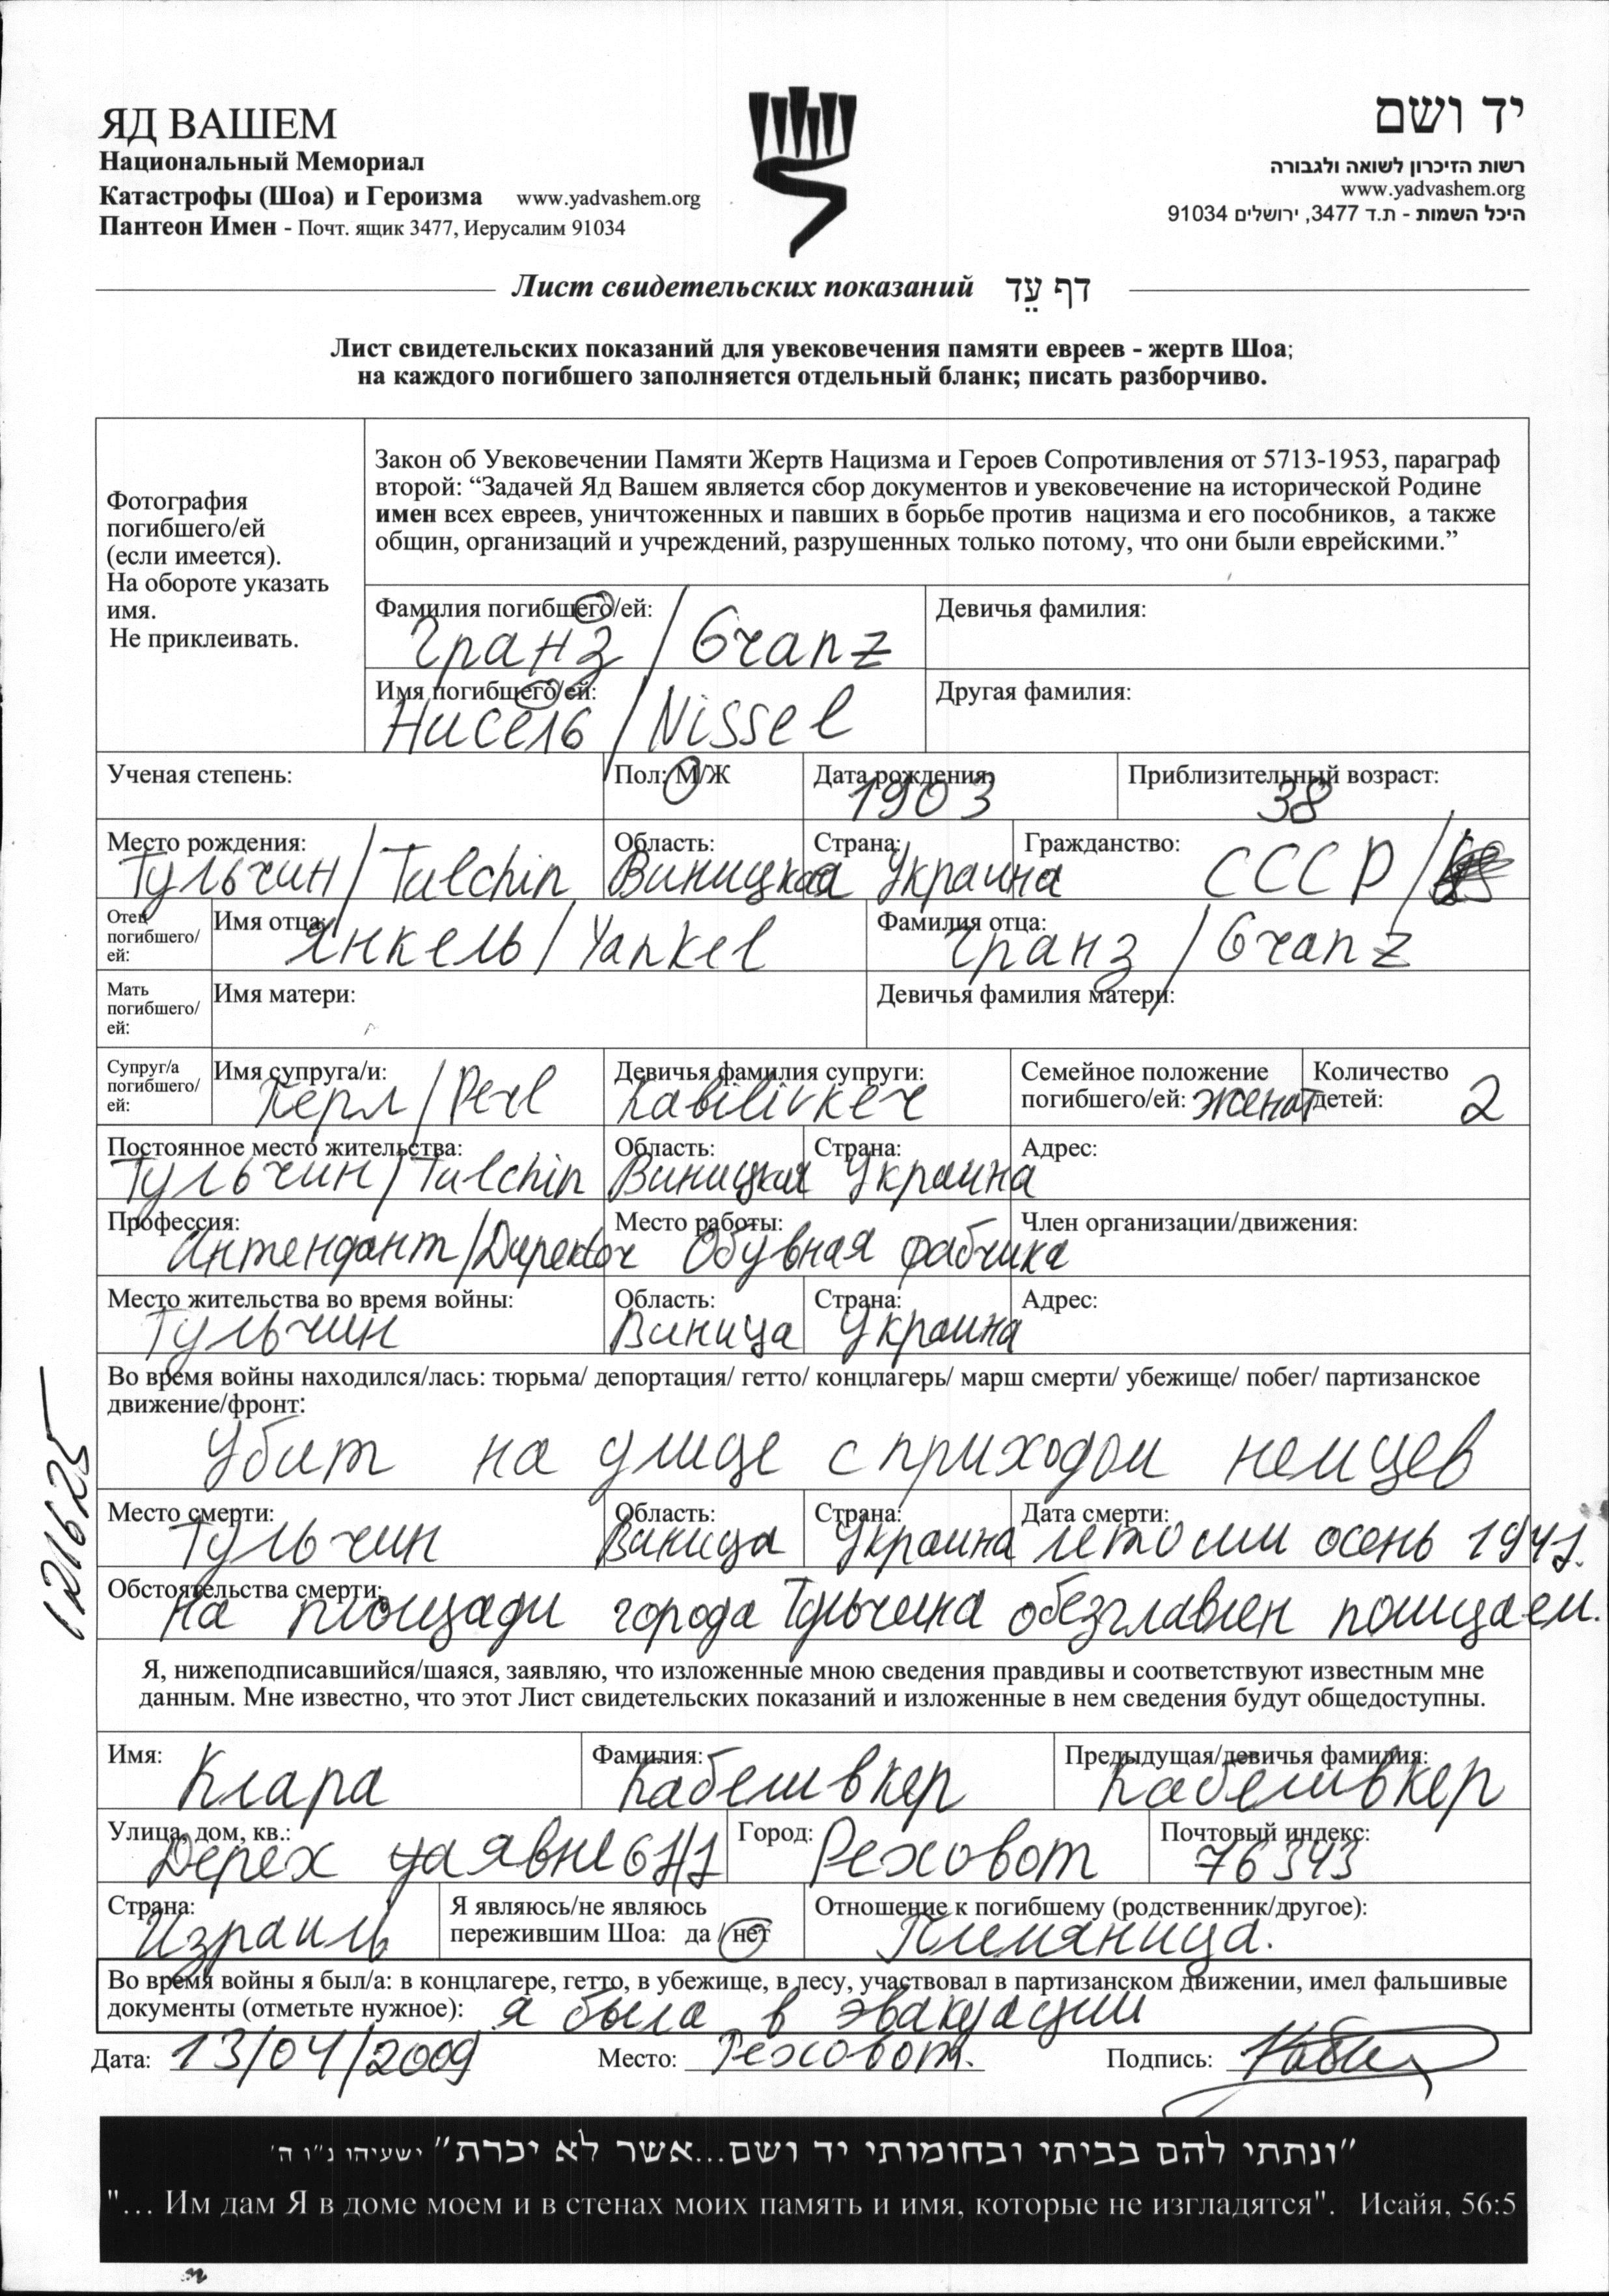 ЯД ВАШЕМ
Национальный Мемориал
Катастрофы (Шоа) и Героизма www.yadvashem.org
Пантеон Имен - Почт. ящик 3477, Иерусалим 91034
יד ושם
רשות הזיכרון לשואה ולגבורה
www.yadvashem.org
היכל השמות - ת.ד 3477, ירושלים 91034
Лист свидетельских показаний דף עֵד
Лист свидетельских показаний для увековечения памяти евреев - жертв Шоа;
на каждого погибшего заполняется отдельный бланк; писать разборчиво.
Фотография
погибшего/ей
(если имеется).
На обороте указать
имя.
Не приклеивать.
Закон об Увековечении Памяти Жертв Нацизма и Героев Сопротивления от 5713-1953, параграф
второй: “Задачей Яд Вашем является сбор документов и увековечение на исторической Родине
имен всех евреев, уничтоженных и павших в борьбе против нацизма и его пособников, а также
общин, организаций и учреждений, разрушенных только потому, что они были еврейскими.”
Фамилия погибшего/ей: Девичья фамилия:
Гранз / Granz
Имя погибшего/ей: Другая фамилия:
Нисель / Nissel
Ученая степень: Пол: М/Ж Дата рождения: Приблизительный возраст:
1903 38
Место рождения: Область: Страна: Гражданство:
Тульчин / Tulchin Виницкая Украина СССР /
Отец погибшего/ей: Имя отца: Фамилия отца:
Янкель / Yankel Гранз / Granz
Мать погибшего/ей: Имя матери: Девичья фамилия матери:
Супруг/а погибшего/ей: Имя супруга/и: Девичья фамилия супруги: Семейное положение погибшего/ей: Количество детей:
Перл / Perl Kabilivker женат 2
Постоянное место жительства: Область: Страна: Адрес:
Тульчин / Tulchin Виницкая Украина
Профессия: Место работы: Член организации/движения:
Интендант / Директор Обувная фабрика
Место жительства во время войны: Область: Страна: Адрес:
Тульчин Виница Украина
Во время войны находился/лась: тюрьма/ депортация/ гетто/ концлагерь/ марш смерти/ убежище/ побег/ партизанское
движение/фронт:
Убит на улице с приходом немцев
121625
Место смерти: Область: Страна: Дата смерти:
Тульчин Виница Украина лето или осень 1941.
Обстоятельства смерти:
На площади города Тульчина обезглавлен полицаем.
Я, нижеподписавшийся/шаяся, заявляю, что изложенные мною сведения правдивы и соответствуют известным мне
данным. Мне известно, что этот Лист свидетельских показаний и изложенные в нем сведения будут общедоступны.
Имя: Фамилия: Предыдущая/девичья фамилия:
Клара Кабеливкер Кабеливкер
Улица, дом, кв.: Город: Почтовый индекс:
Дерех Явне 61/1 Реховот 76343
Страна: Я являюсь/не являюсь Отношение к погибшему (родственник/другое):
пережившим Шоа: да / нет
Израиль Племяница.
Во время войны я был/а: в концлагере, гетто, в убежище, в лесу, участвовал в партизанском движении, имел фальшивые
документы (отметьте нужное): я была в эвакуации
Дата: 13/04/2009 Место: Реховот. Подпись:
"ונתתי להם בביתי ובחומותי יד ושם...אשר לא יכרת" ישעיהו נ"ו ה'
"... Им дам Я в доме моем и в стенах моих память и имя, которые не изгладятся". Исайя, 56:5